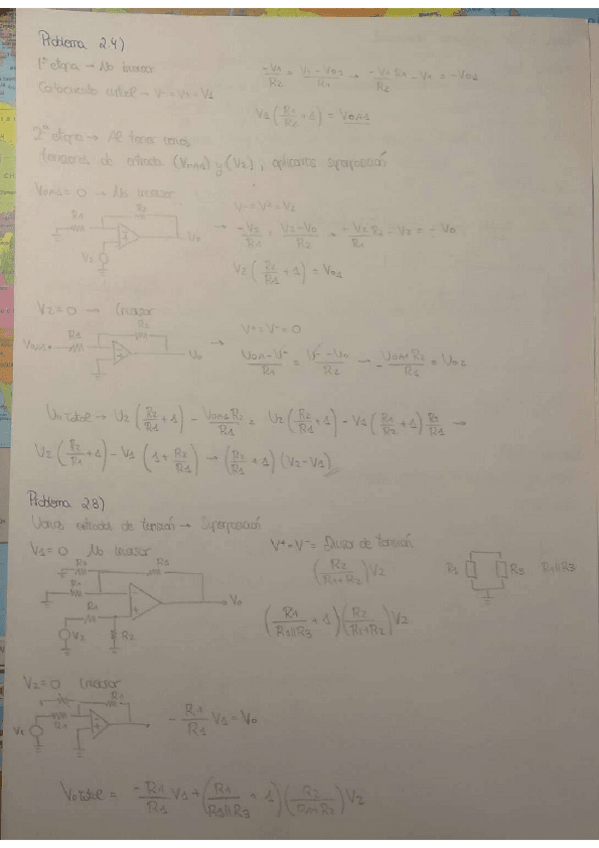 Problema 2.4)
1ª etapa → No inversor
Cortocircuito virtual → V⁻ = V⁺ = V1
-V1/R2 = (V1 - V01)/R1 → -V1 R1/R2 - V1 = -V01
V1 (R1/R2 + 1) = VOA1
2ª etapa → Al tener varias
tensiones de entrada (VOA1) y (V2), aplicamos superposición
VOA1 = 0 → No inversor
R1 R2
V2 Vo
V⁻ = V⁺ = V2
→ -V2/R1 = (V2 - V0)/R2 = -V2 R2/R1 - V2 = -V0
V2 (R2/R1 + 1) = V01
V2 = 0 → Inversor
VOA1 R1 R2 Vo
→ V⁺ = V⁻ = 0
(VOA1 - V⁻)/R1 = (V⁻ - V0)/R2 → -VOA1 R2/R1 = V02
V0 total → V2 (R2/R1 + 1) - VOA1 R2/R1 = V2 (R2/R1 + 1) - V1 (R1/R2 + 1) R2/R1 →
V2 (R2/R1 + 1) - V1 (1 + R2/R1) → (R2/R1 + 1) (V2 - V1)
Problema 2.8)
Varias entradas de tensión → Superposición
V1 = 0 No inversor
V2 R2 Vo
V⁺ = V⁻ = Divisor de tensión
(R2/(R1+R2)) V2
R1 R3 R1||R3
(R1/(R1||R3) + 1) (R2/(R1+R2)) V2
V2 = 0 Inversor
V1 R1
-R1/R1 V1 = V0
V0 total = -R1/R1 V1 + (R1/(R1||R3) + 1) (R2/(R1+R2)) V2